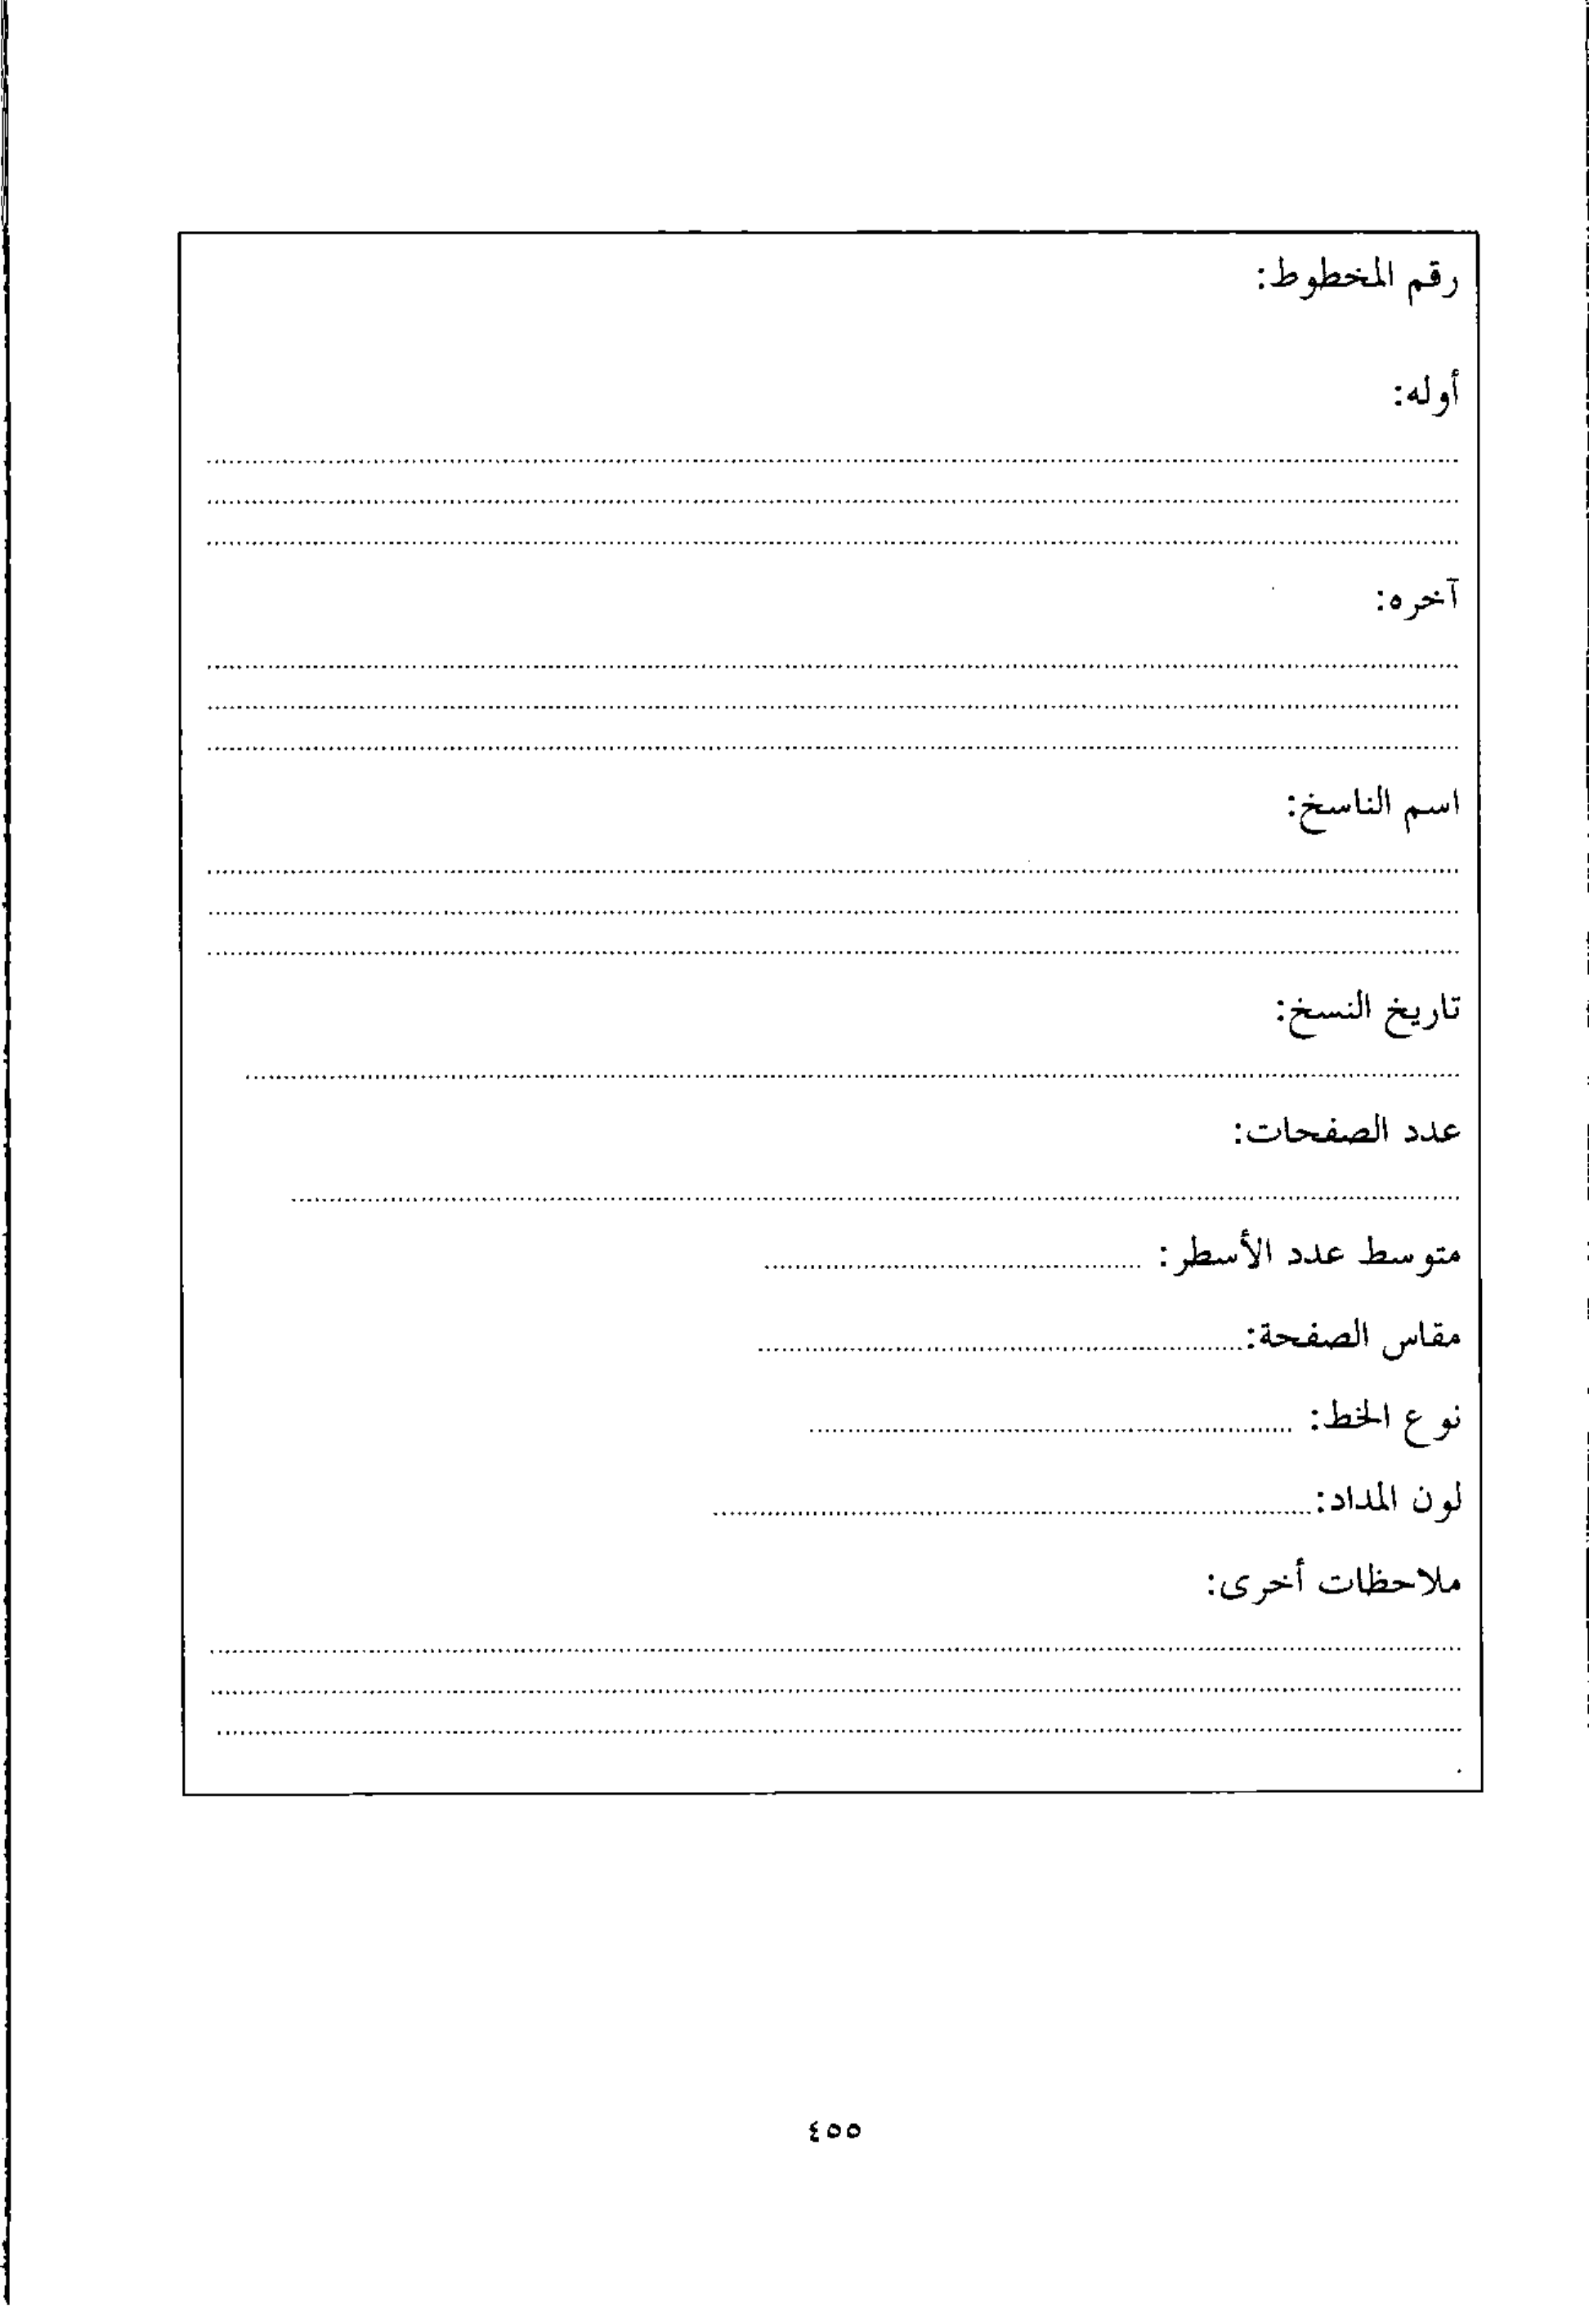 رقم المخطوط:
أوله:
................................................................
................................................................
................................................................
آخره:
................................................................
................................................................
................................................................
اسم الناسخ:
................................................................
................................................................
................................................................
تاريخ النسخ:
................................................................
عدد الصفحات:
................................................................
متوسط عدد الأسطر: ................................
مقاس الصفحة:................................
نوع الخط: ................................
لون المداد:................................
ملاحظات أخرى:
................................................................
................................................................
................................................................
.
٤٥٥